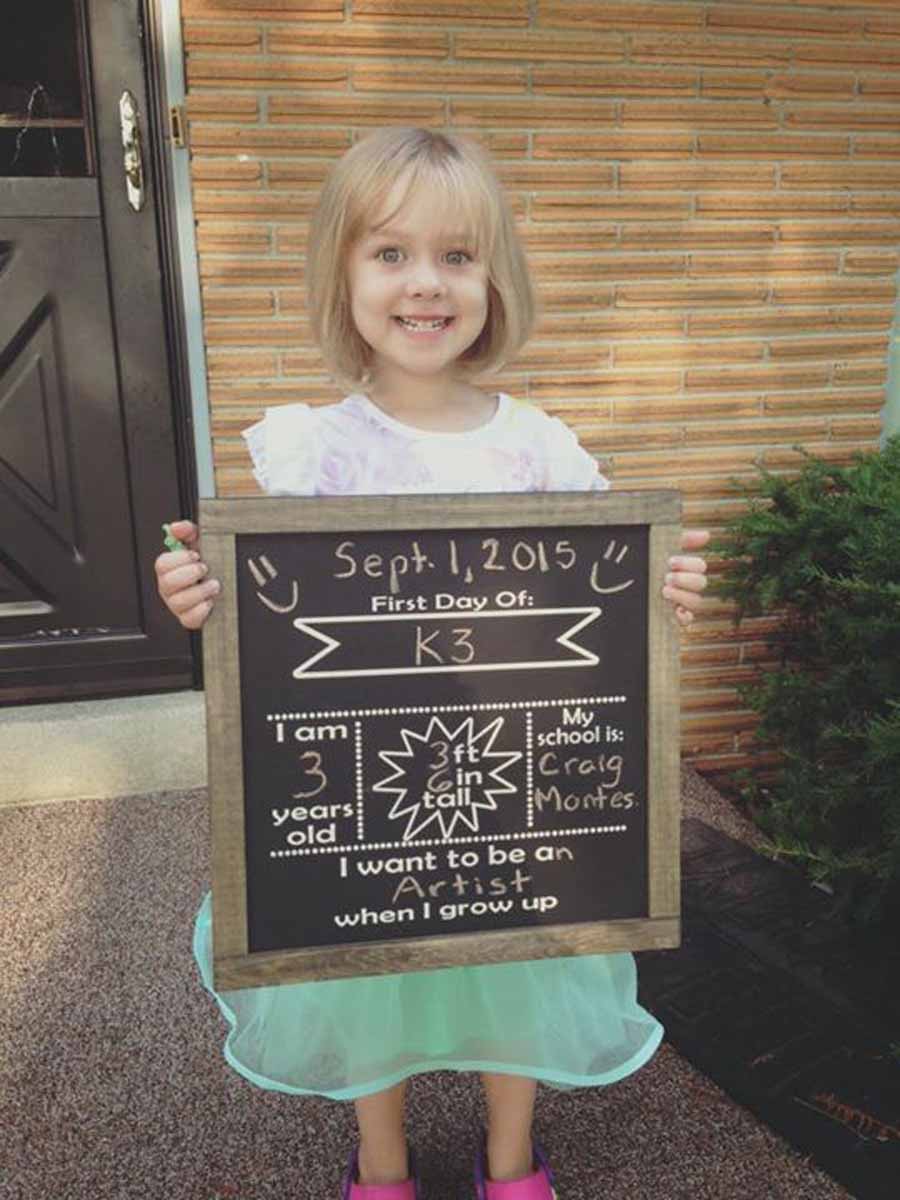 Sept. 1, 2015
First Day Of:
K3
I am
3
years
old
3ft
6in
tall
My
school is:
Craig
Montes.
I want to be an
Artist
when I grow up